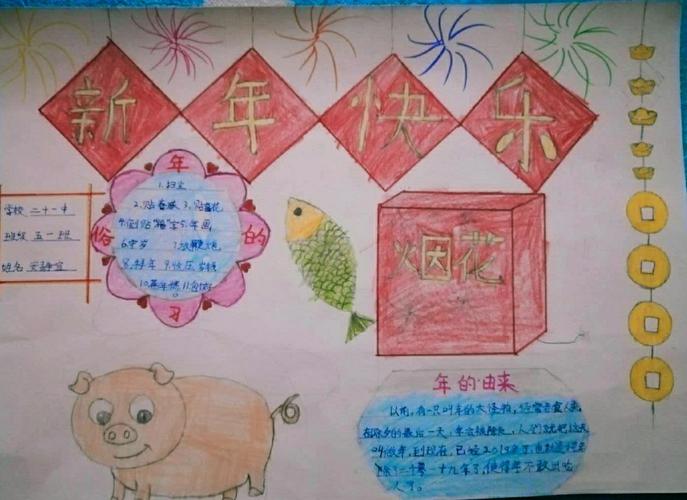 新年快乐
学校 二十一中
班级 五一班
姓名 安静宜
年的习俗
1.扫尘
2.贴春联 3.贴窗花
4.倒贴"福"字5.年画
6.守岁 7.放鞭炮
8.拜年 9.收压岁钱
10.蒸年馍 11.包饺子
烟花
年的由来
以前,有一只叫年的大怪物,经常去食人类,
在除夕的最后一天,年会被,人们就把这天
叫做年,到现在,已经2019年了,也就是说
除了二个零一十九年了,使得年不敢出
人了。